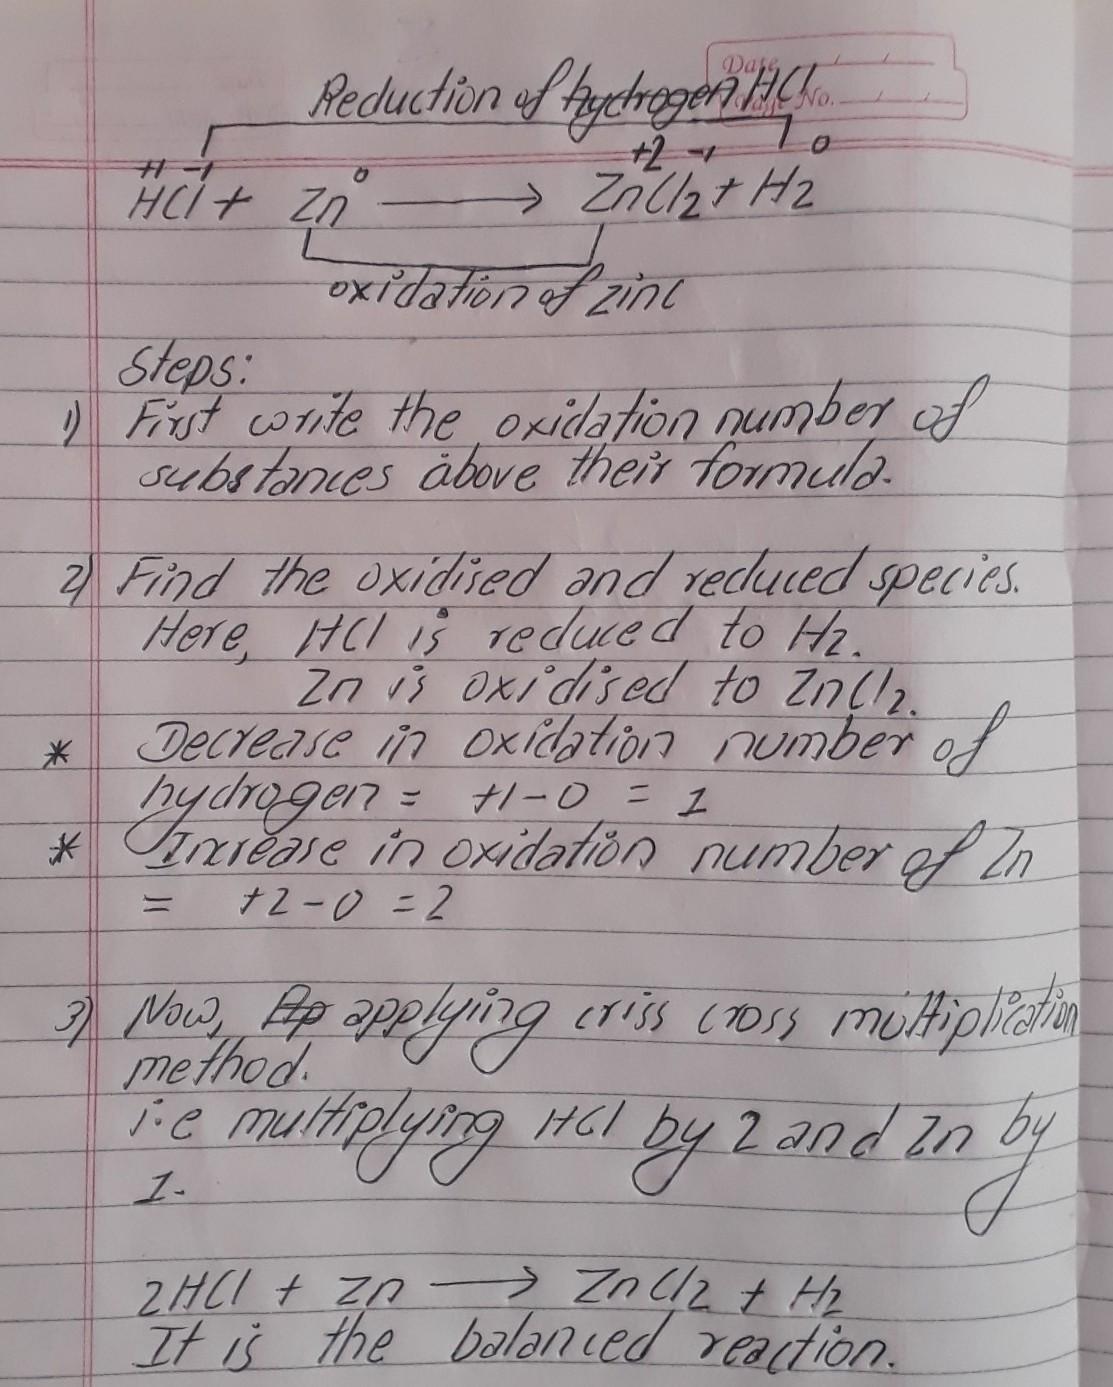 Date
Page No.
Reduction of hydrogen HCl
+1 -1 0 +2 -1 0
HCl + Zn ⟶ ZnCl2 + H2
oxidation of zinc
Steps:
1) First write the oxidation number of
substances above their formula.
2) Find the oxidised and reduced species.
Here, HCl is reduced to H2.
Zn is oxidised to ZnCl2.
* Decrease in oxidation number of
hydrogen = +1-0 = 1
* Increase in oxidation number of Zn
= +2-0 = 2
3) Now, Ap applying criss cross multiplication
method.
i.e multiplying HCl by 2 and Zn by
1.
2HCl + Zn ⟶ ZnCl2 + H2
It is the balanced reaction.